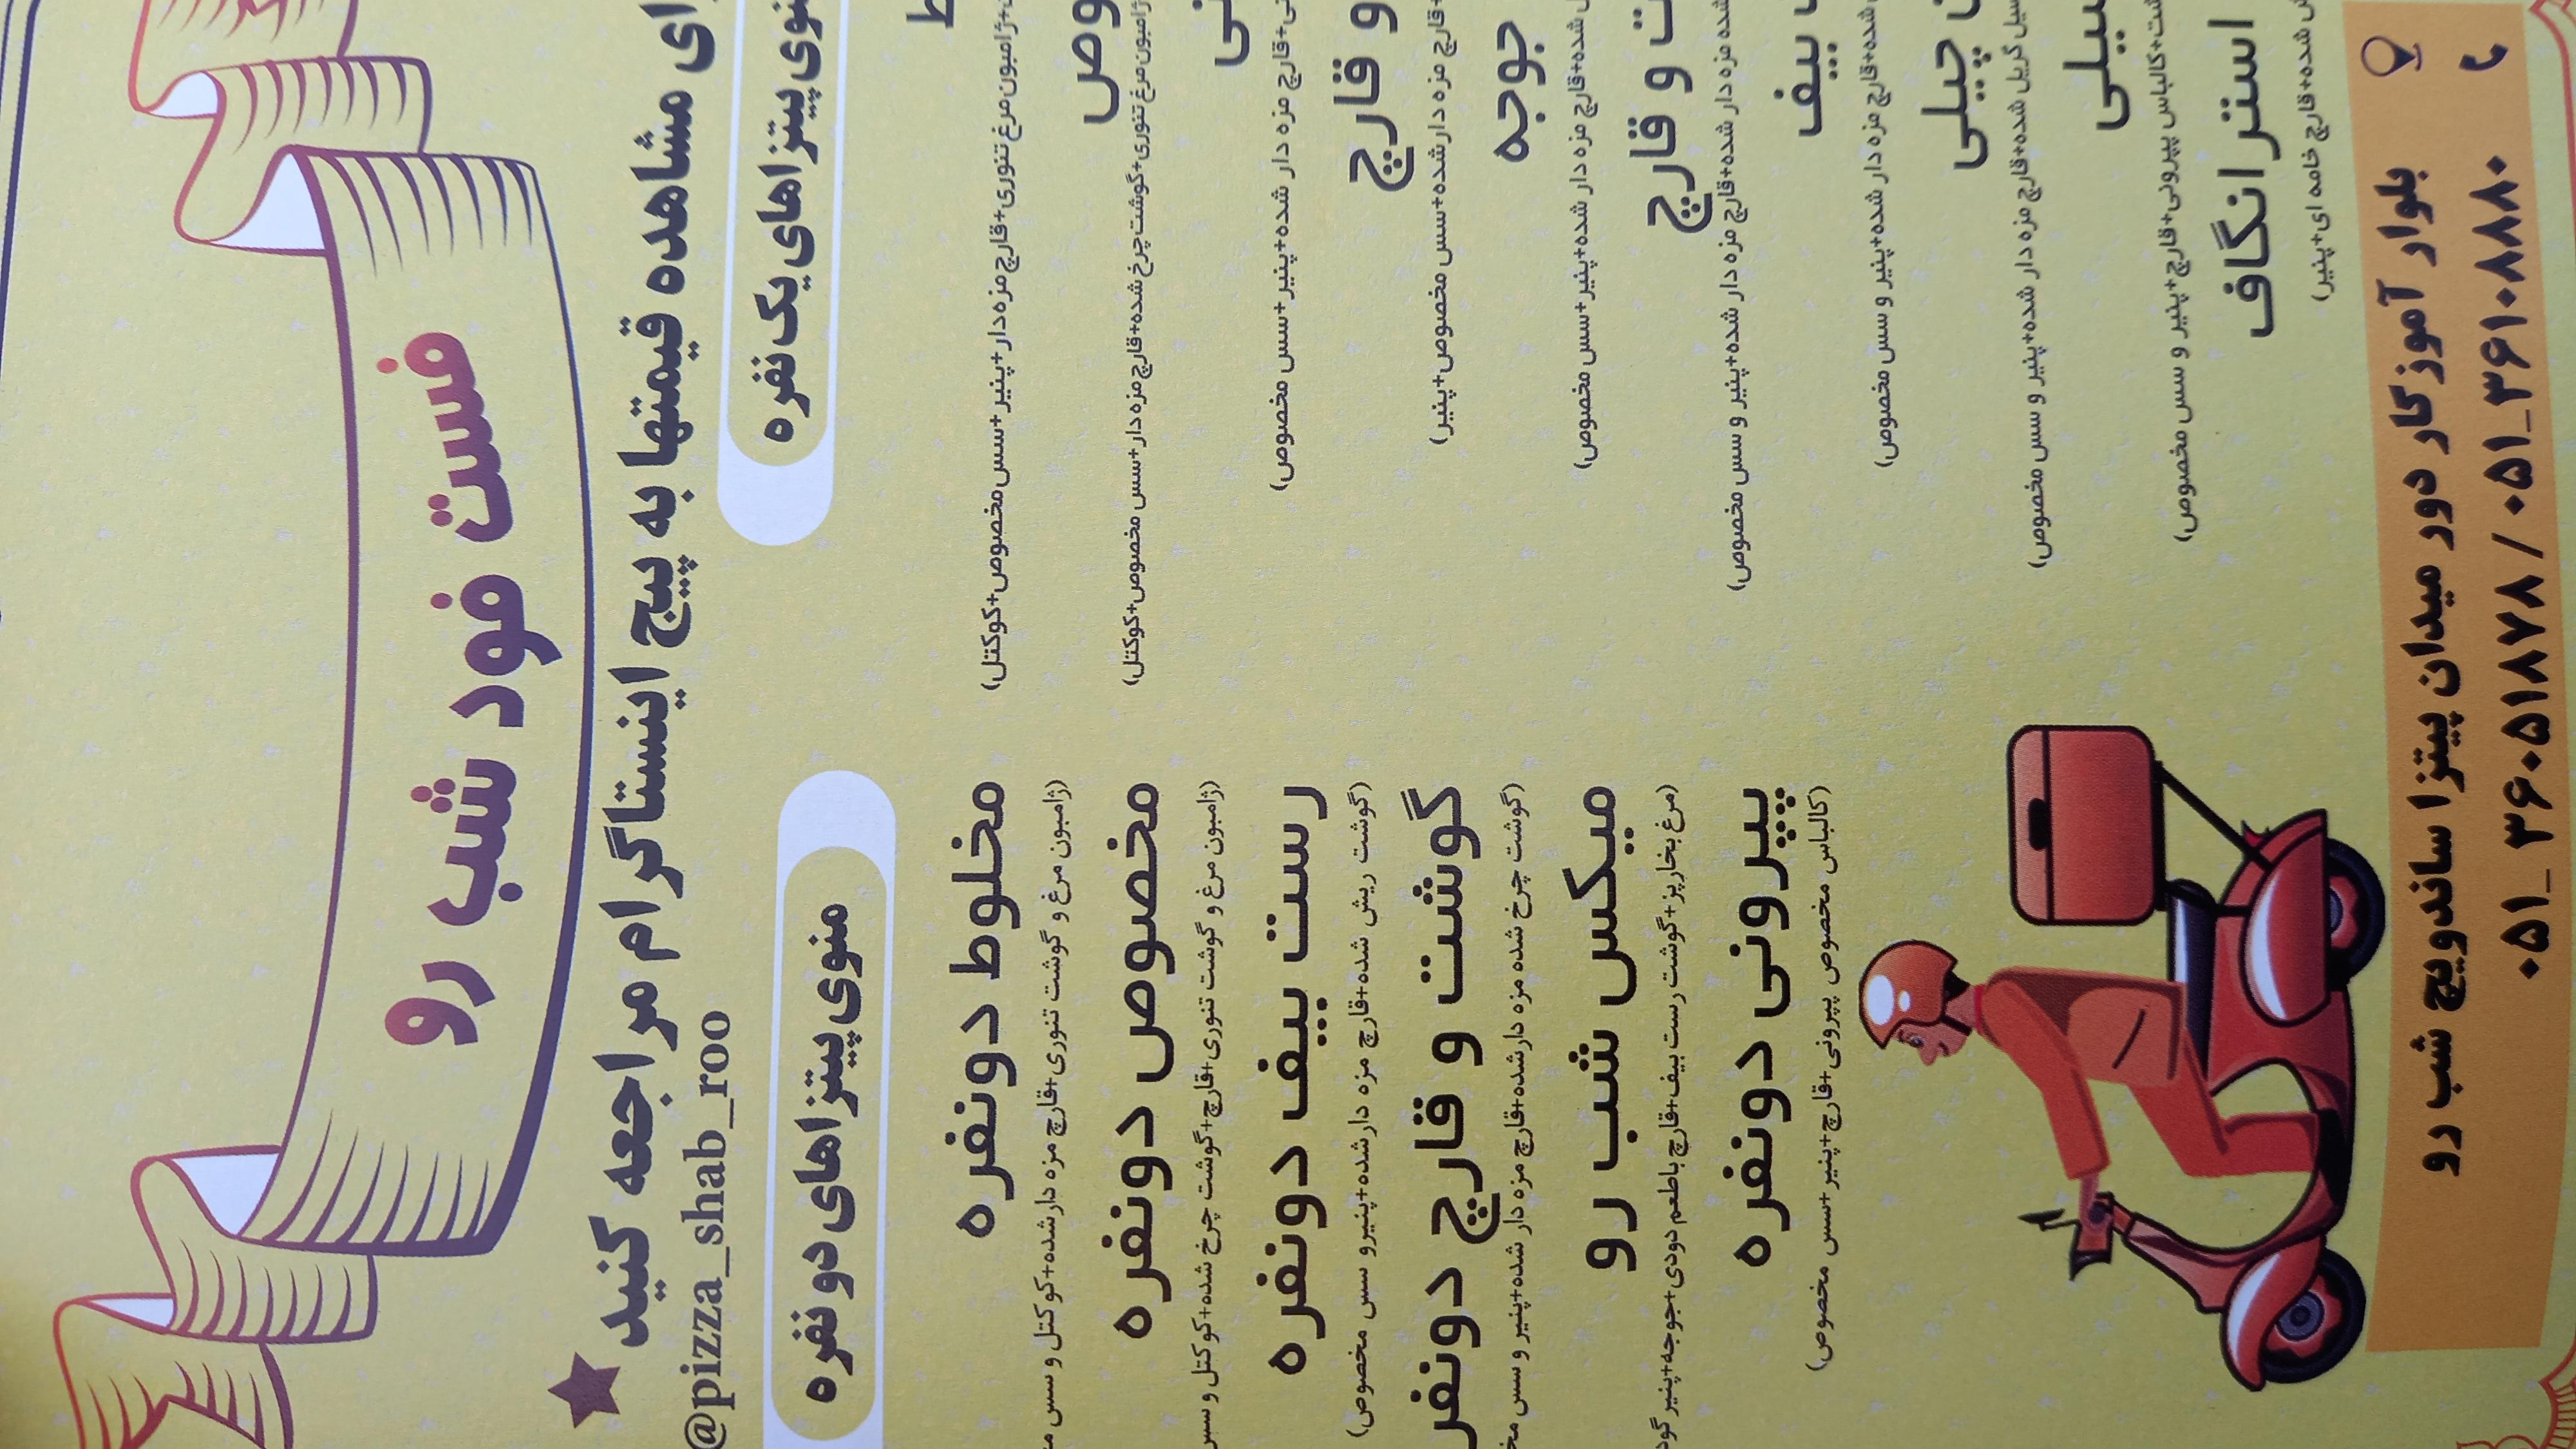 فست فود شب رو
مشاهده قیمتها به پیج اینستاگرام مراجعه کنید
@pizza_shab_roo
منوی پیتزاهای یک نفره
ژامبون مرغ تنوری+قارچ مزه دار+پنیر+سس مخصوص+کوکتل)
ژامبون مرغ تنوری+گوشت چرخ شده+قارچ مزه دار+سس مخصوص+کوکتل)
قارچ مزه دار شده+پنیر+سس مخصوص)
و قارچ
قارچ مزه دارشده+سس مخصوص+پنیر)
جوجه
شده+قارچ مزه دار شده+پنیر+سس مخصوص)
و قارچ
شده مزه دار شده+قارچ مزه دار شده+پنیر و سس مخصوص)
بیف
شده+قارچ مزه دار شده+پنیر و سس مخصوص)
چیلی
گریل شده+قارچ مزه دار شده+پنیر و سس مخصوص)
کالباس پپرونی+قارچ+پنیر و سس مخصوص)
استرانگاف
شده+قارچ خامه ای+پنیر)
منوی پیتزاهای دو نفره
مخلوط دونفره
(ژامبون مرغ و گوشت تنوری+قارچ مزه دارشده+کوکتل و سس
مخصوص دونفره
(ژامبون مرغ و گوشت تنوری+قارچ+گوشت چرخ شده+کوکتل و سس
رست بیف دونفره
(گوشت ریش شده+قارچ مزه دارشده+پنیرو سس مخصوص)
گوشت و قارچ دونفر
(گوشت چرخ شده مزه دارشده+قارچ مزه دار شده+پنیر و سس
میکس شب رو
(مرغ بخارپز+گوشت رست بیف+قارچ باطعم دودی+جوجه+پنیر
پپرونی دونفره
(کالباس مخصوص پپرونی+قارچ+پنیر+سس مخصوص)
بلوار آموزگار دور میدان پیتزا ساندویچ شب رو
۰۵۱_۳۶۰۵۱۸۷۸ / ۰۵۱_۳۶۱۰۸۸۸۰